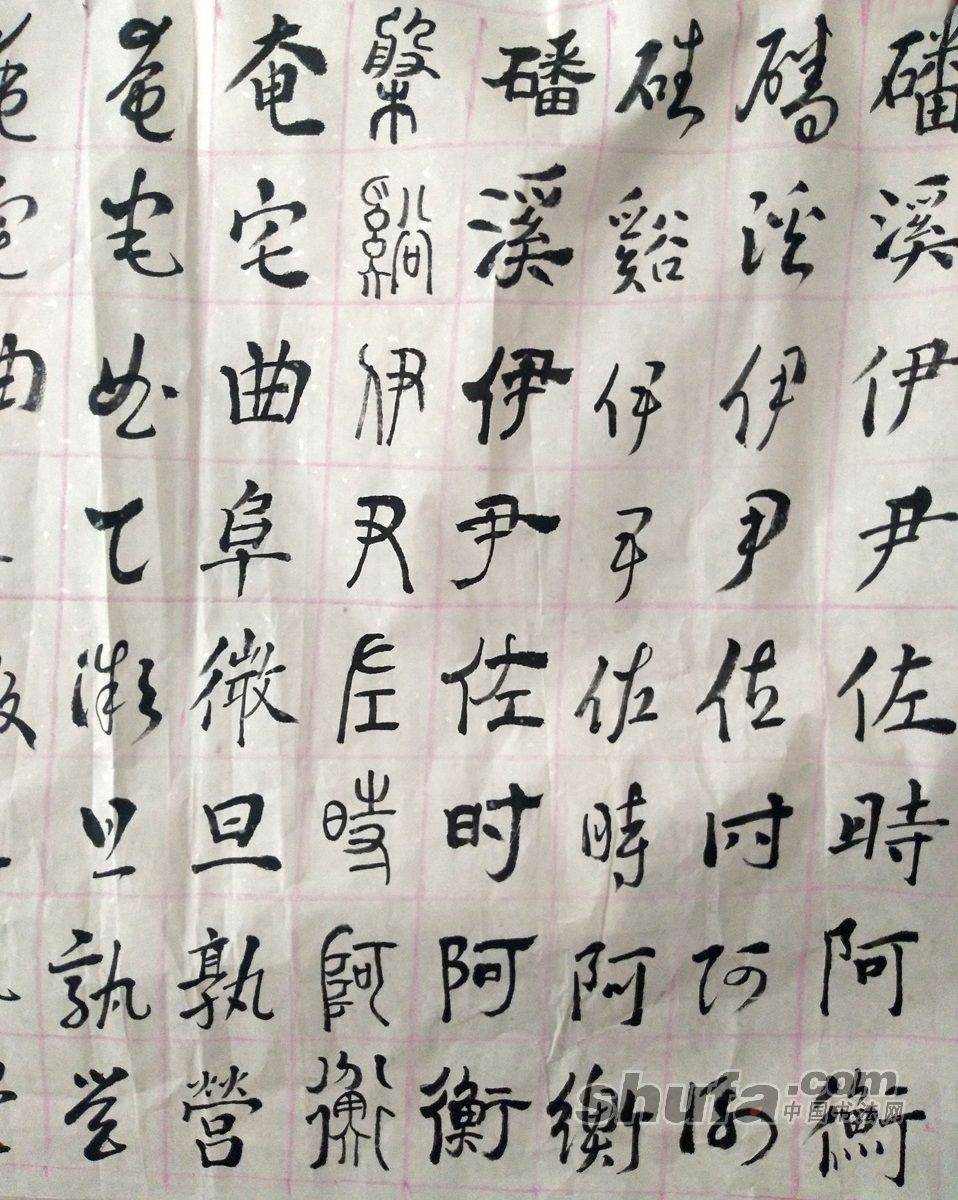 磻溪伊尹佐時阿衡
磻溪伊尹佐时阿衡
谿伊尹佐時阿衡
磻溪伊尹佐时阿衡
槃谿伊尹左時阿衡
奄宅曲阜微旦孰營
奄宅曲阜微旦孰营
曲
shufa.com
中国书法网